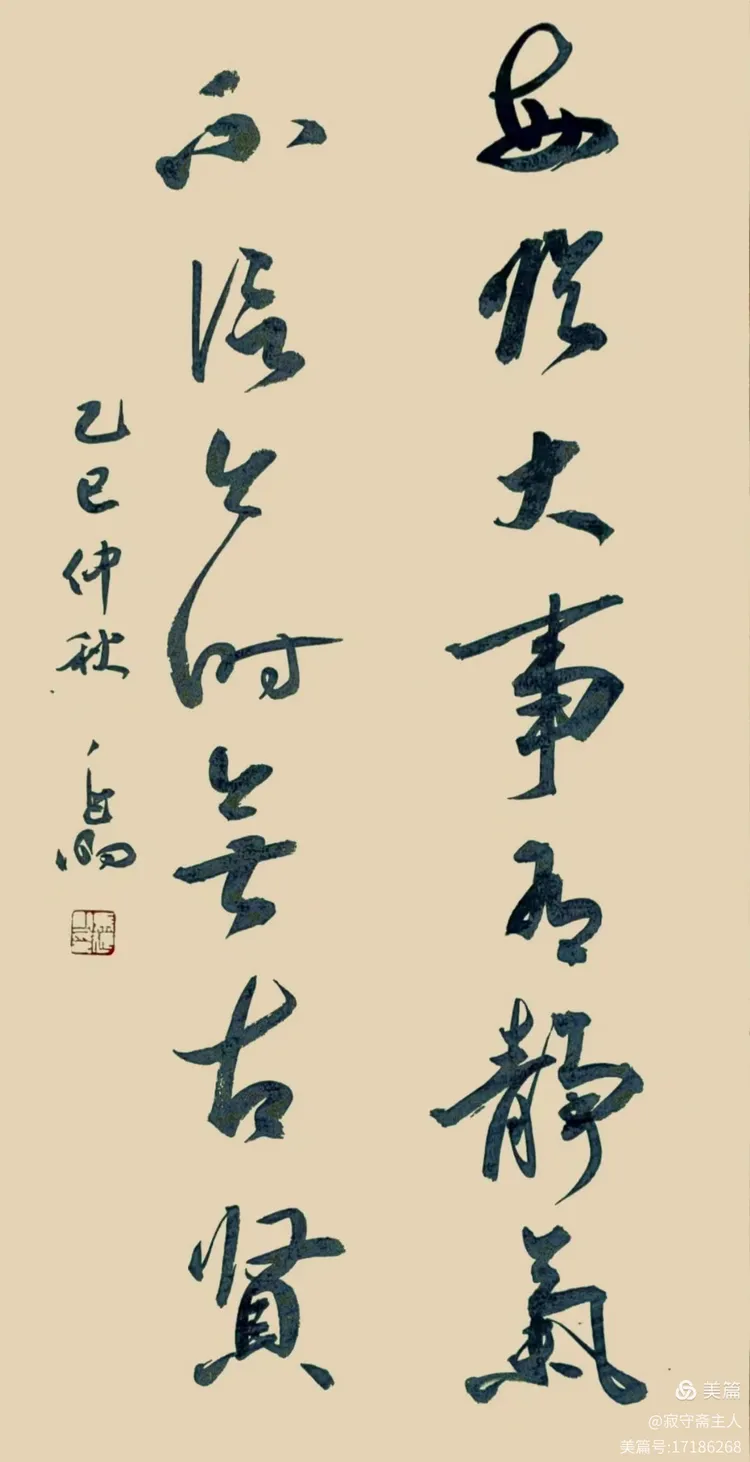 每临大事有静氣
不信今时無古賢
乙巳仲秋
美篇
@寂守斋主人
美篇号:17186268